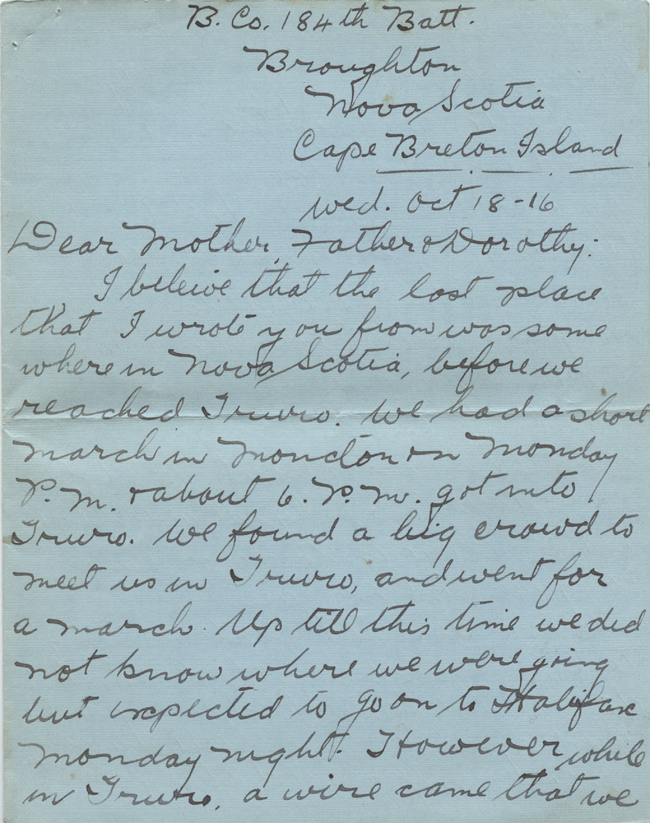 B. Co. 184th Batt.
Broughton
Nova Scotia
Cape Breton Island
Wed. Oct 18-16
Dear Mother, Father & Dorothy:
I beleive that the last place
that I wrote you from was some
where in Nova Scotia, before we
reached Truro. We had a short
march in Moncton on Monday
P.M. & about 6. P.M. got into
Truro. We found a big crowd to
meet us in Truro, and went for
a march. Up till this time we did
not know where we were going
but expected to go on to Halifax
Monday night. However while
in Truro, a wire came that we